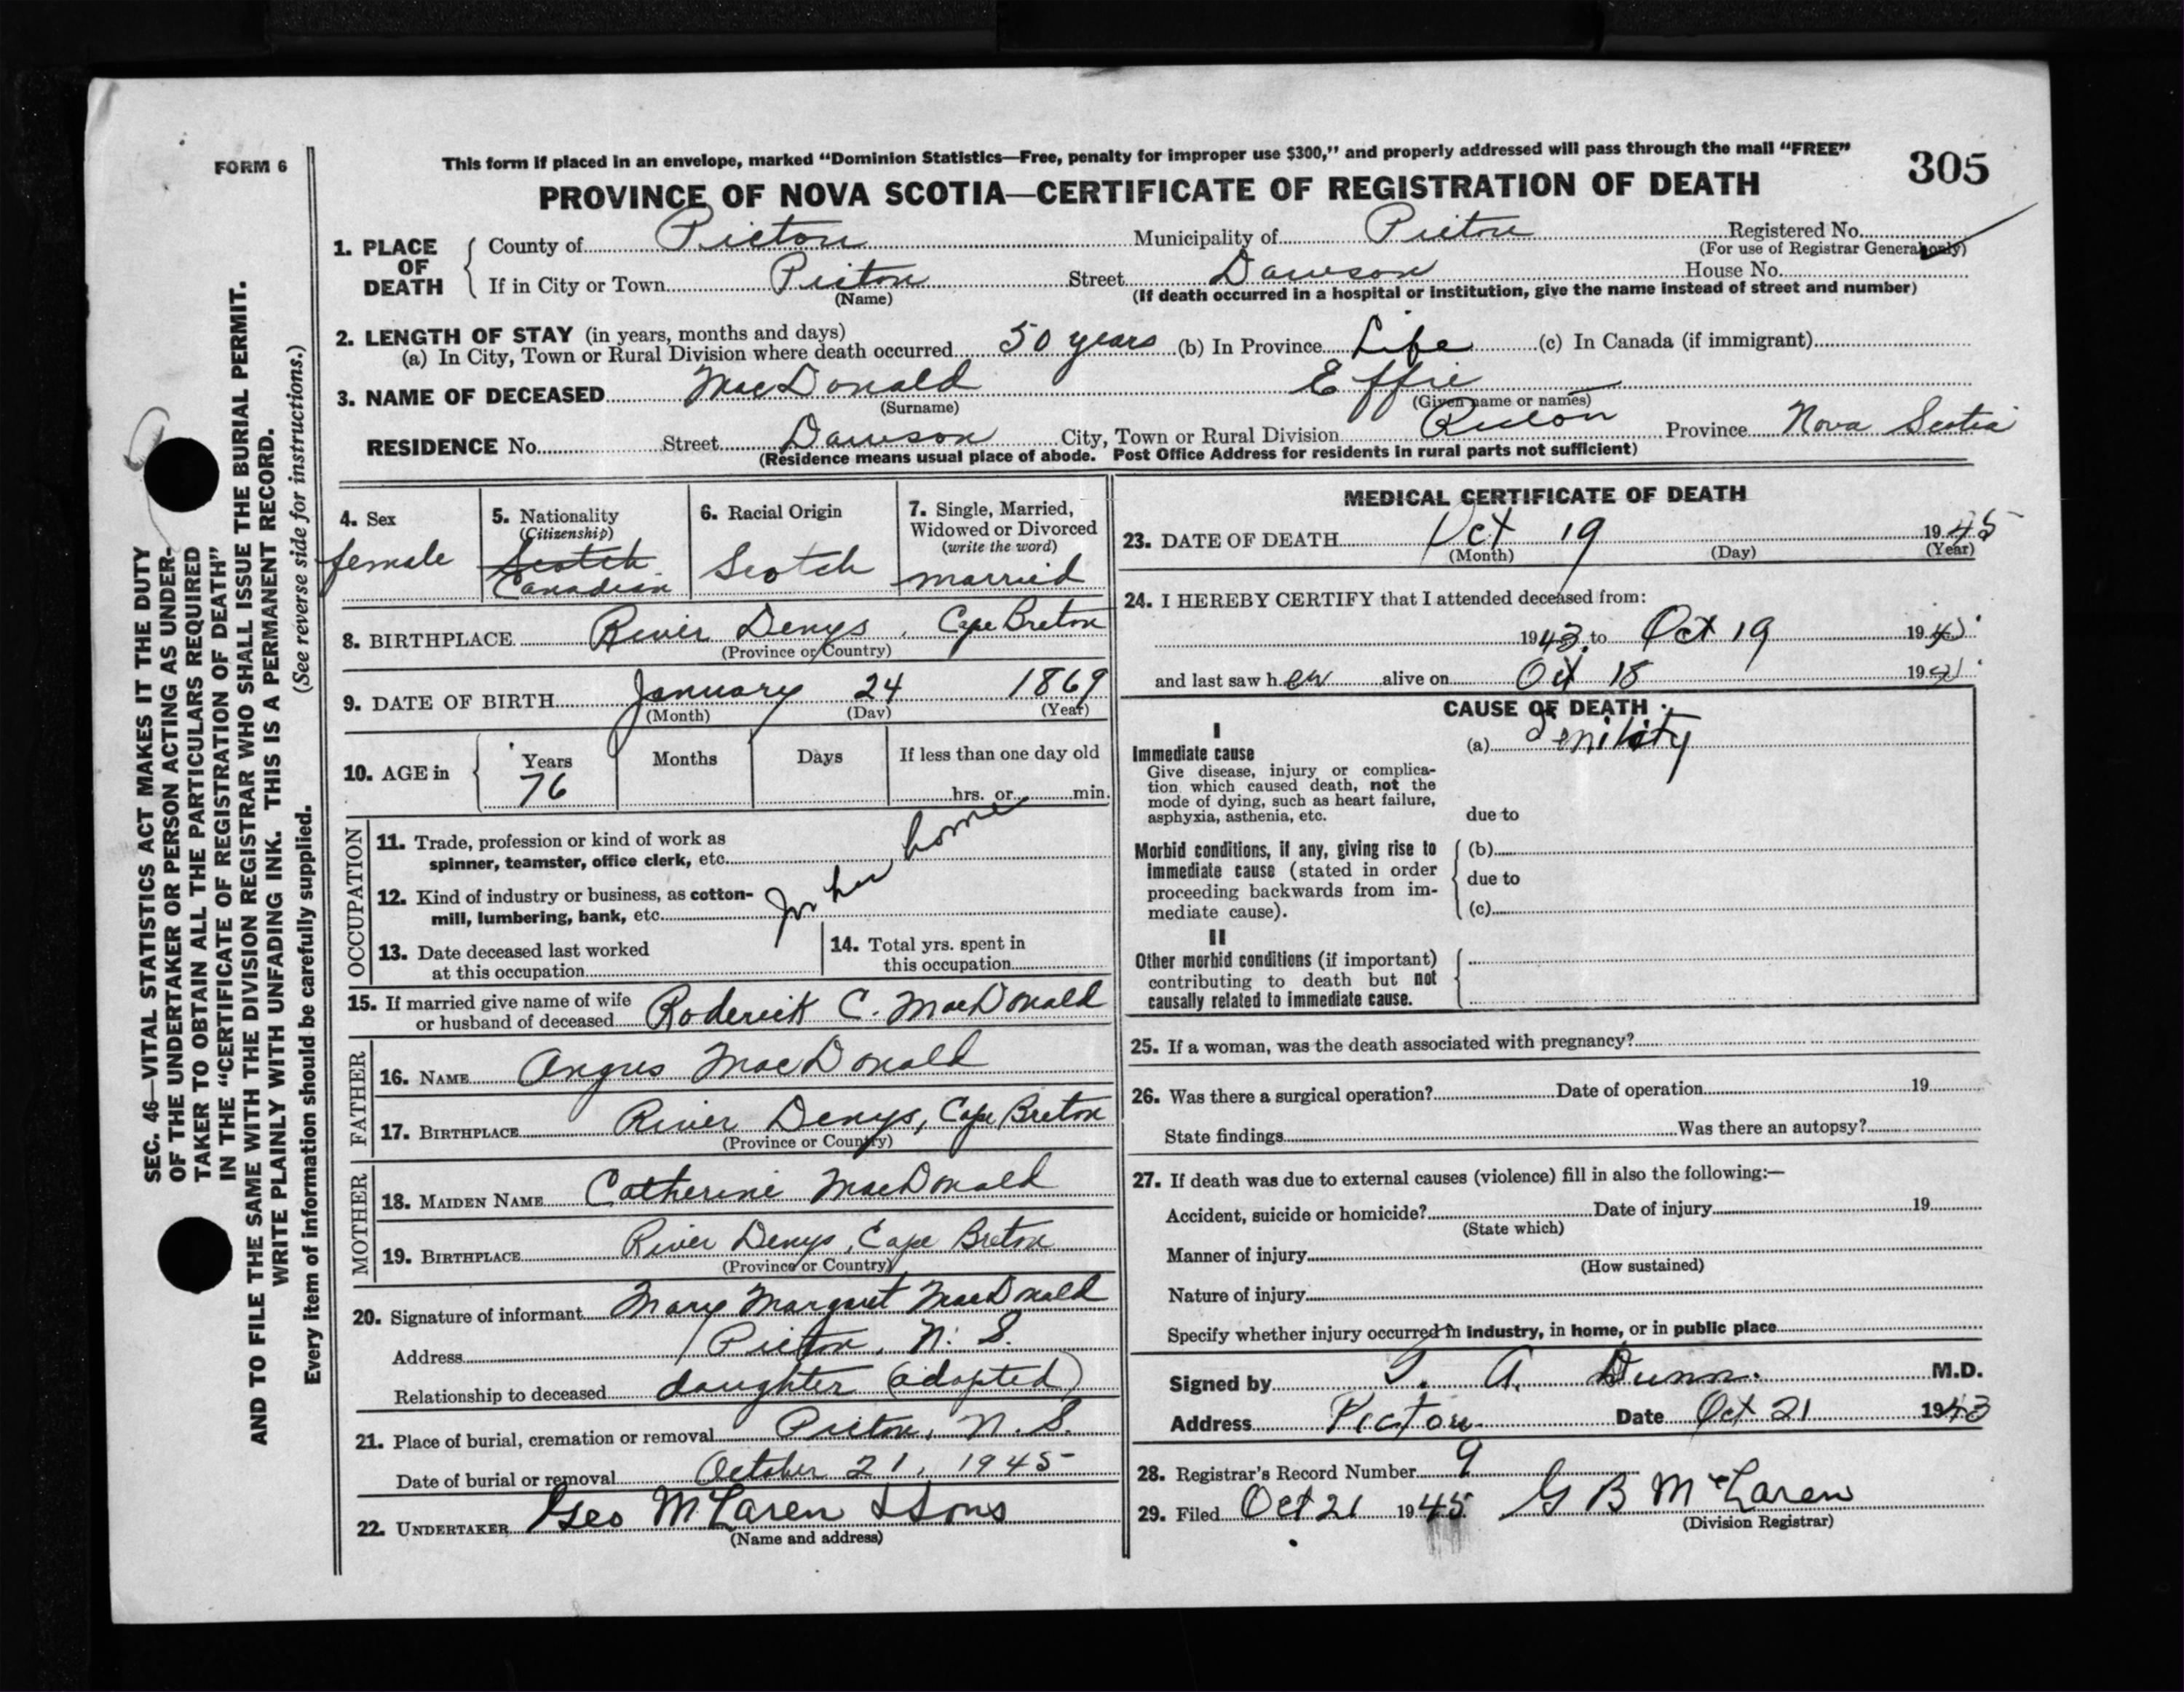 FORM 6
This form if placed in an envelope, marked “Dominion Statistics—Free, penalty for improper use $300,” and properly addressed will pass through the mail “FREE”
305
PROVINCE OF NOVA SCOTIA—CERTIFICATE OF REGISTRATION OF DEATH
1. PLACE OF DEATH
County of Pictou Municipality of Pictou Registered No.
(For use of Registrar General only)
If in City or Town Pictou Street Dawson House No.
(Name) (If death occurred in a hospital or institution, give the name instead of street and number)
2. LENGTH OF STAY (in years, months and days)
(a) In City, Town or Rural Division where death occurred 50 years (b) In Province Life (c) In Canada (if immigrant)
3. NAME OF DECEASED MacDonald Effie
(Surname) (Given name or names)
RESIDENCE No. Street Dawson City, Town or Rural Division Pictou Province Nova Scotia
(Residence means usual place of abode. Post Office Address for residents in rural parts not sufficient)
4. Sex
female
5. Nationality
(Citizenship)
Scotch
Canadian
6. Racial Origin
Scotch
7. Single, Married,
Widowed or Divorced
(write the word)
married
8. BIRTHPLACE River Denys, Cape Breton
(Province or Country)
9. DATE OF BIRTH January 24 1869
(Month) (Day) (Year)
10. AGE in
Years Months Days If less than one day old
76 hrs. or min.
OCCUPATION
11. Trade, profession or kind of work as
spinner, teamster, office clerk, etc.
12. Kind of industry or business, as cotton-
mill, lumbering, bank, etc.
In her home
13. Date deceased last worked
at this occupation
14. Total yrs. spent in
this occupation
15. If married give name of wife
or husband of deceased Roderick C. MacDonald
FATHER
16. NAME Angus MacDonald
17. BIRTHPLACE River Denys, Cape Breton
(Province or Country)
MOTHER
18. MAIDEN NAME Catherine MacDonald
19. BIRTHPLACE River Denys, Cape Breton
(Province or Country)
20. Signature of informant Mary Margaret MacDonald
Address Pictou, N. S.
Relationship to deceased daughter (adopted)
21. Place of burial, cremation or removal Pictou, N. S.
Date of burial or removal October 21, 1945
22. UNDERTAKER Geo McLaren & Sons
(Name and address)
MEDICAL CERTIFICATE OF DEATH
23. DATE OF DEATH Oct 19 1945
(Month) (Day) (Year)
24. I HEREBY CERTIFY that I attended deceased from:
1943 to Oct 19 1945
and last saw her alive on Oct 18 19
CAUSE OF DEATH
I
Immediate cause
Give disease, injury or complica-
tion which caused death, not the
mode of dying, such as heart failure,
asphyxia, asthenia, etc.
(a) Senility
due to
Morbid conditions, if any, giving rise to
immediate cause (stated in order
proceeding backwards from im-
mediate cause).
(b)
due to
(c)
II
Other morbid conditions (if important)
contributing to death but not
causally related to immediate cause.
25. If a woman, was the death associated with pregnancy?
26. Was there a surgical operation? Date of operation 19
State findings Was there an autopsy?
27. If death was due to external causes (violence) fill in also the following:—
Accident, suicide or homicide? Date of injury 19
(State which)
Manner of injury
(How sustained)
Nature of injury
Specify whether injury occurred in industry, in home, or in public place
Signed by A. Dunn. M.D.
Address Pictou Date Oct 21 1943
28. Registrar's Record Number 9
29. Filed Oct 21 1945 G B McLaren
(Division Registrar)
SEC. 46—VITAL STATISTICS ACT MAKES IT THE DUTY
OF THE UNDERTAKER OR PERSON ACTING AS UNDER-
TAKER TO OBTAIN ALL THE PARTICULARS REQUIRED
IN THE “CERTIFICATE OF REGISTRATION OF DEATH”
AND TO FILE THE SAME WITH THE DIVISION REGISTRAR WHO SHALL ISSUE THE BURIAL PERMIT.
WRITE PLAINLY WITH UNFADING INK. THIS IS A PERMANENT RECORD.
Every item of information should be carefully supplied. (See reverse side for instructions.)